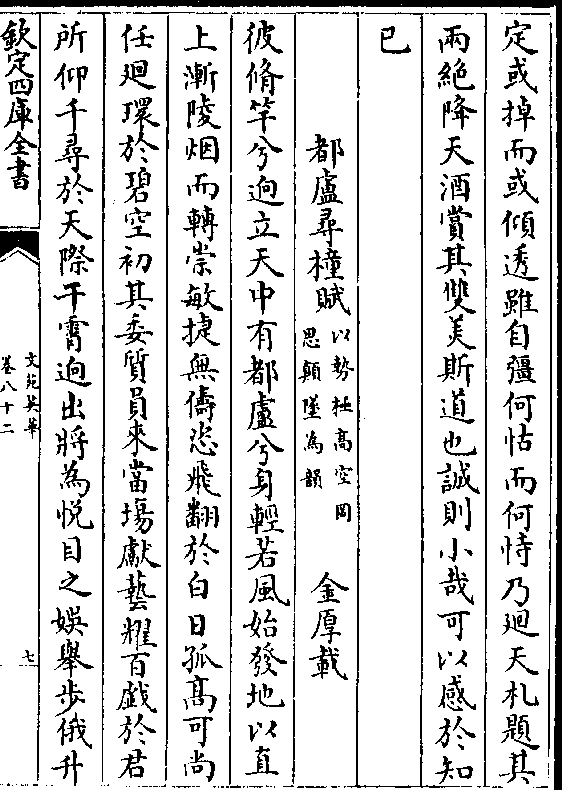 定或掉而或傾透雖自彊何怙而何恃乃廻天札題其
兩絶降天酒賞其雙美斯道也誠則小哉可以感於知
已
都盧尋橦賦以勢極高空罔思顛墜為韻 金厚載
彼脩竿兮逈立天中有都盧兮身輕若風始發地以直
上漸陵烟而轉崇敏捷無儔恣飛翻於白日孤高可尚
任廻環於碧空初其委質員來當塲獻藝耀百戯於君
所仰千尋於天際干霄逈出將為悦目之娯舉歩俄升
欽定四庫全書
文苑英華
卷八十二
七